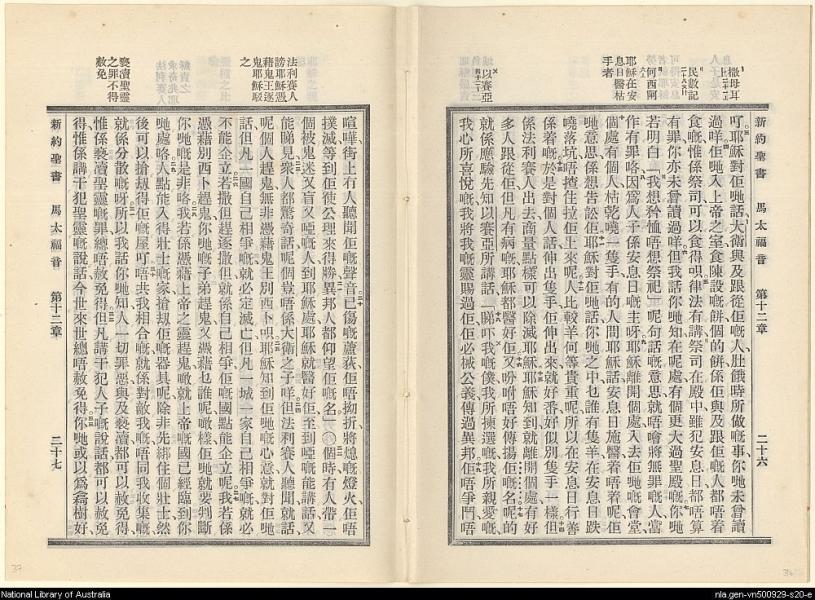 新約聖書 馬太福音 第十二章 二十六
撒母耳上二十一
民數記二十八
何西阿六
耶穌在安息日醫枯手者
以賽亞四十二
吖耶穌對佢哋話大衛與及跟從佢嘅人肚餓時所做嘅事你哋未曾讀
過咩佢哋入上帝之室食陳設嘅餅個的餅係佢與及跟佢嘅人都唔着
食嘅惟係祭司可以食得呀律法有講祭司在殿中雖犯安息日都唔算
有罪你亦未曾讀過咩但我話你哋知在呢處有個更大過聖殿嘅你哋
若明白我想矜恤唔想祭祀呢句話嘅意思就唔會將無罪嘅人當
作有罪咯因爲人子係安息日嘅主呀耶穌離開個處入去佢哋嘅會堂
個處有個人枯乾嘵一隻手有的人問耶穌話安息日施醫着唔着呢佢
哋意思係想告訟佢耶穌對佢哋話你哋之中乜誰有隻羊在安息日跌
嘵落坑唔揸住拉佢上來呢人比較羊何等貴重呢所以在安息日行善
係着嘅於是對個人話伸出隻手佢伸出來就好番好似別隻手一樣但
係法利賽人出去商量點樣可以除滅耶穌耶穌知到就離開個處有好
多人跟從佢但凡有病嘅耶穌都醫好佢又吩咐唔好傳揚佢嘅名呢的
就係應驗先知以賽亞所講話睇吓我嘅僕我所揀選嘅我所親愛嘅
我心所喜悅嘅我將我嘅靈賜過佢佢必將公義傳過異邦佢唔爭鬥唔
法利賽人謗耶穌憑藉鬼王逐鬼耶穌駁之
褻瀆聖靈之罪不得赦免
喧嘩街上有人聽聞佢嘅聲音已傷嘅蘆荻佢唔拗折將熄嘅燈火佢唔
撲滅等到佢使公理來得勝異邦人都仰望佢嘅名○個時有人帶一
個被鬼迷又盲又啞嘅人到耶穌處耶穌就醫好佢至到啞嘅能講話又
能睇見衆人都驚奇話呢個豈唔係大衛之子咩但法利賽人聽聞就話
呢個人趕鬼無非憑藉鬼王別西卜呀耶穌知到佢哋嘅心意就對佢哋
話但凡一國自己相爭嘅就必定滅亡但凡一城一家自己相爭嘅就必
不能企立若撒但趕逐撒但就係自己相爭佢嘅國點能企立呢我若係
憑藉別西卜趕鬼你哋嘅子弟趕鬼又憑藉乜誰呢噉樣佢哋就要判斷
你哋嘅是非咯我若係憑藉上帝之靈趕鬼噉就上帝嘅國已經臨到你
哋處咯人點能入得壯士嘅家搶刧佢嘅器具呢除非先綁住個壯士然
後可以搶刧得佢嘅屋吖唔共我相合嘅就係對敵我嘅唔同我收集嘅
就係分散嘅呀所以我話你哋知人一切罪惡與及褻瀆都可以赦免得
惟係褻瀆聖靈嘅罪總唔赦免得但凡講干犯人子嘅說話都可以赦免
得惟係講干犯聖靈嘅說話今世來世總唔赦免得你哋或以爲樹好
新約聖書 馬太福音 第十二章 二十七
37
National Library of Australia
nla.gen-vn500929-s20-e